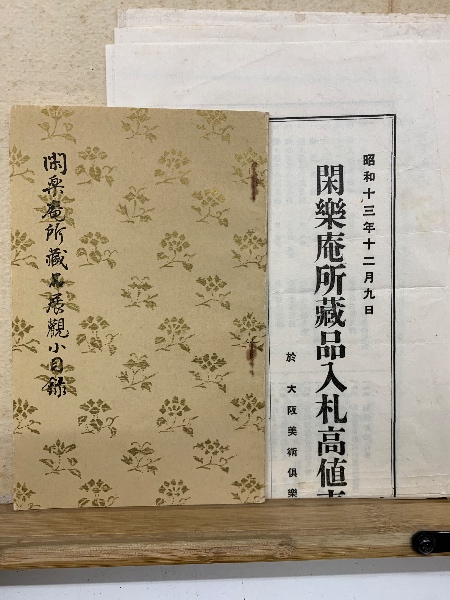 閑樂庵所藏品展觀小目錄
昭和十三年十二月九日
閑樂庵所藏品入札高値
於 大阪美術俱樂